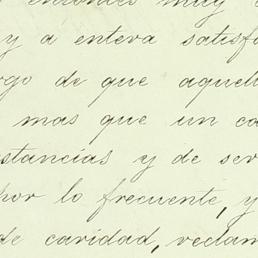 entonces muy
y a entera satisf
rgo de que aquel
mas que un ca
stancias y de ser
por lo frecuente, y
de caridad, reclam